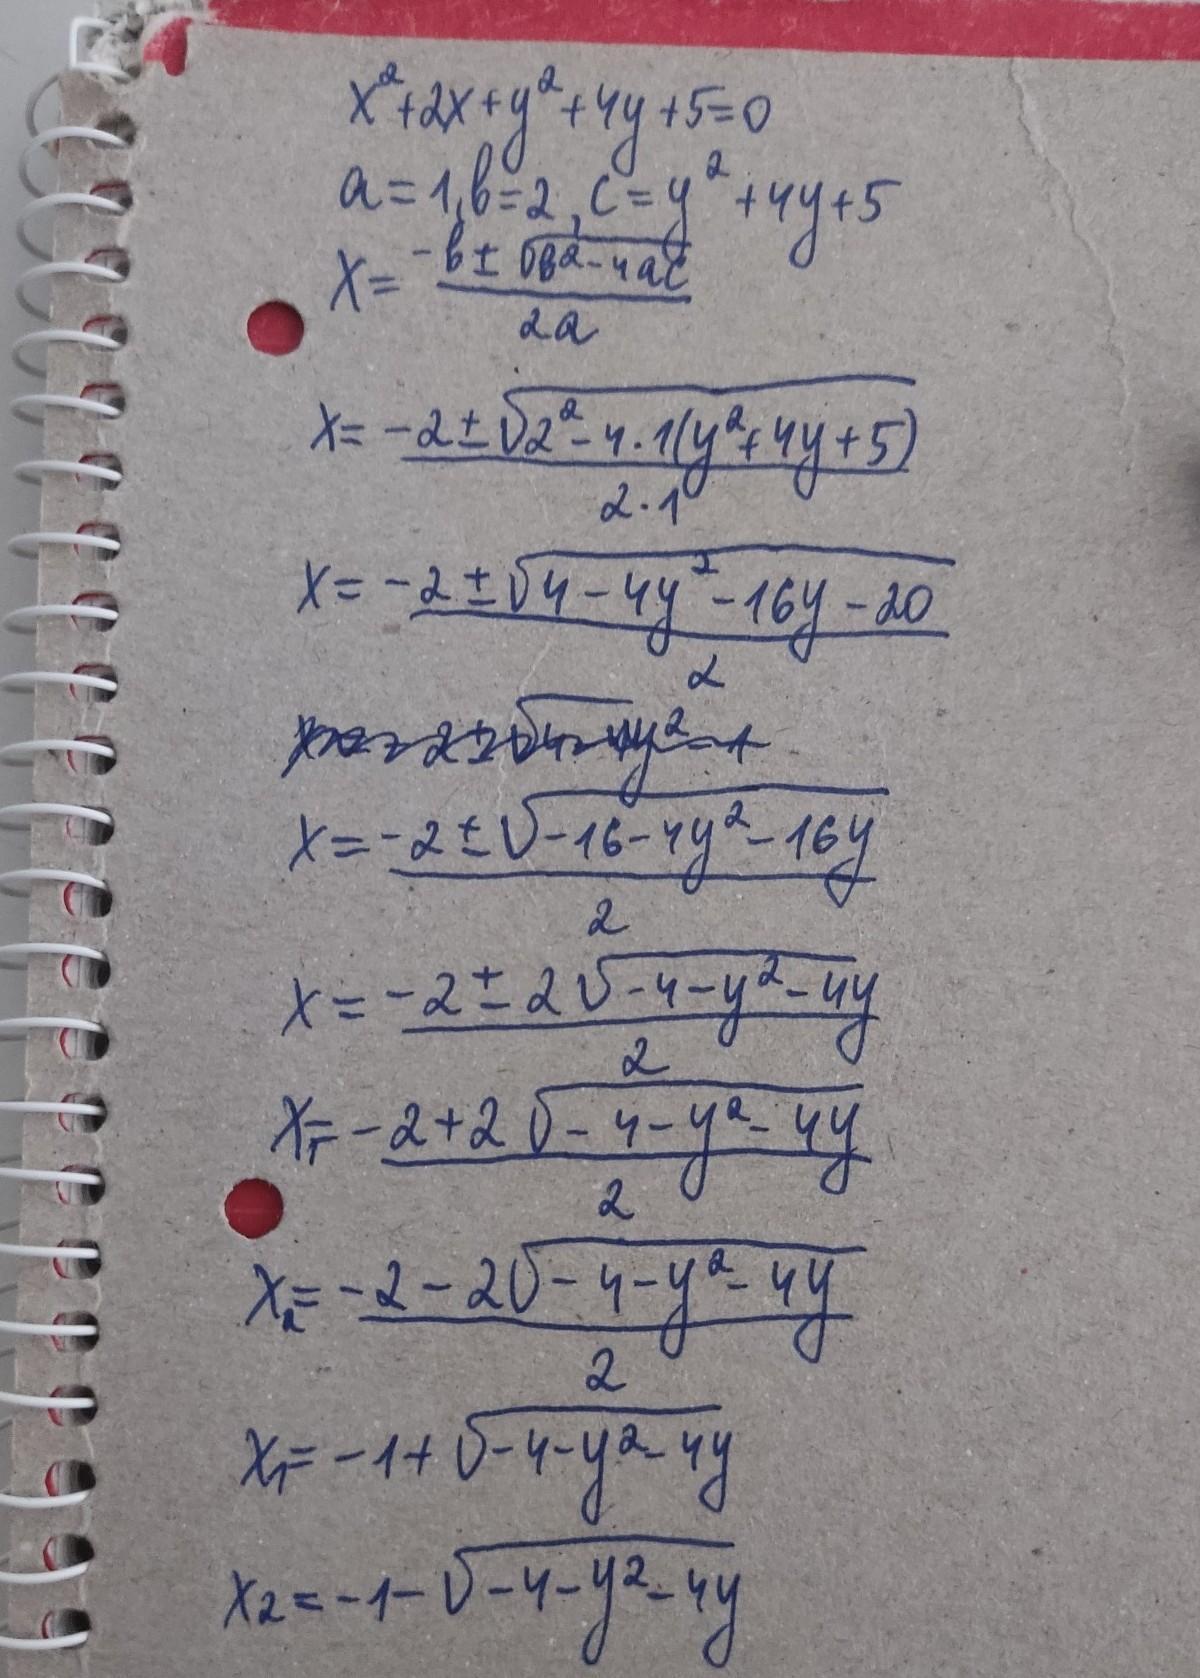 x²+2x+y²+4y+5=0
a=1, b=2, c=y²+4y+5
x= -b±√b²-4ac / 2a
x= -2±√2²-4·1(y²+4y+5) / 2·1
x= -2±√4-4y²-16y-20 / 2
x= -2±√-16-4y²-16y / 2
x= -2±2√-4-y²-4y / 2
x₁= -2+2√-4-y²-4y / 2
x₂= -2-2√-4-y²-4y / 2
x₁= -1+√-4-y²-4y
x₂= -1-√-4-y²-4y